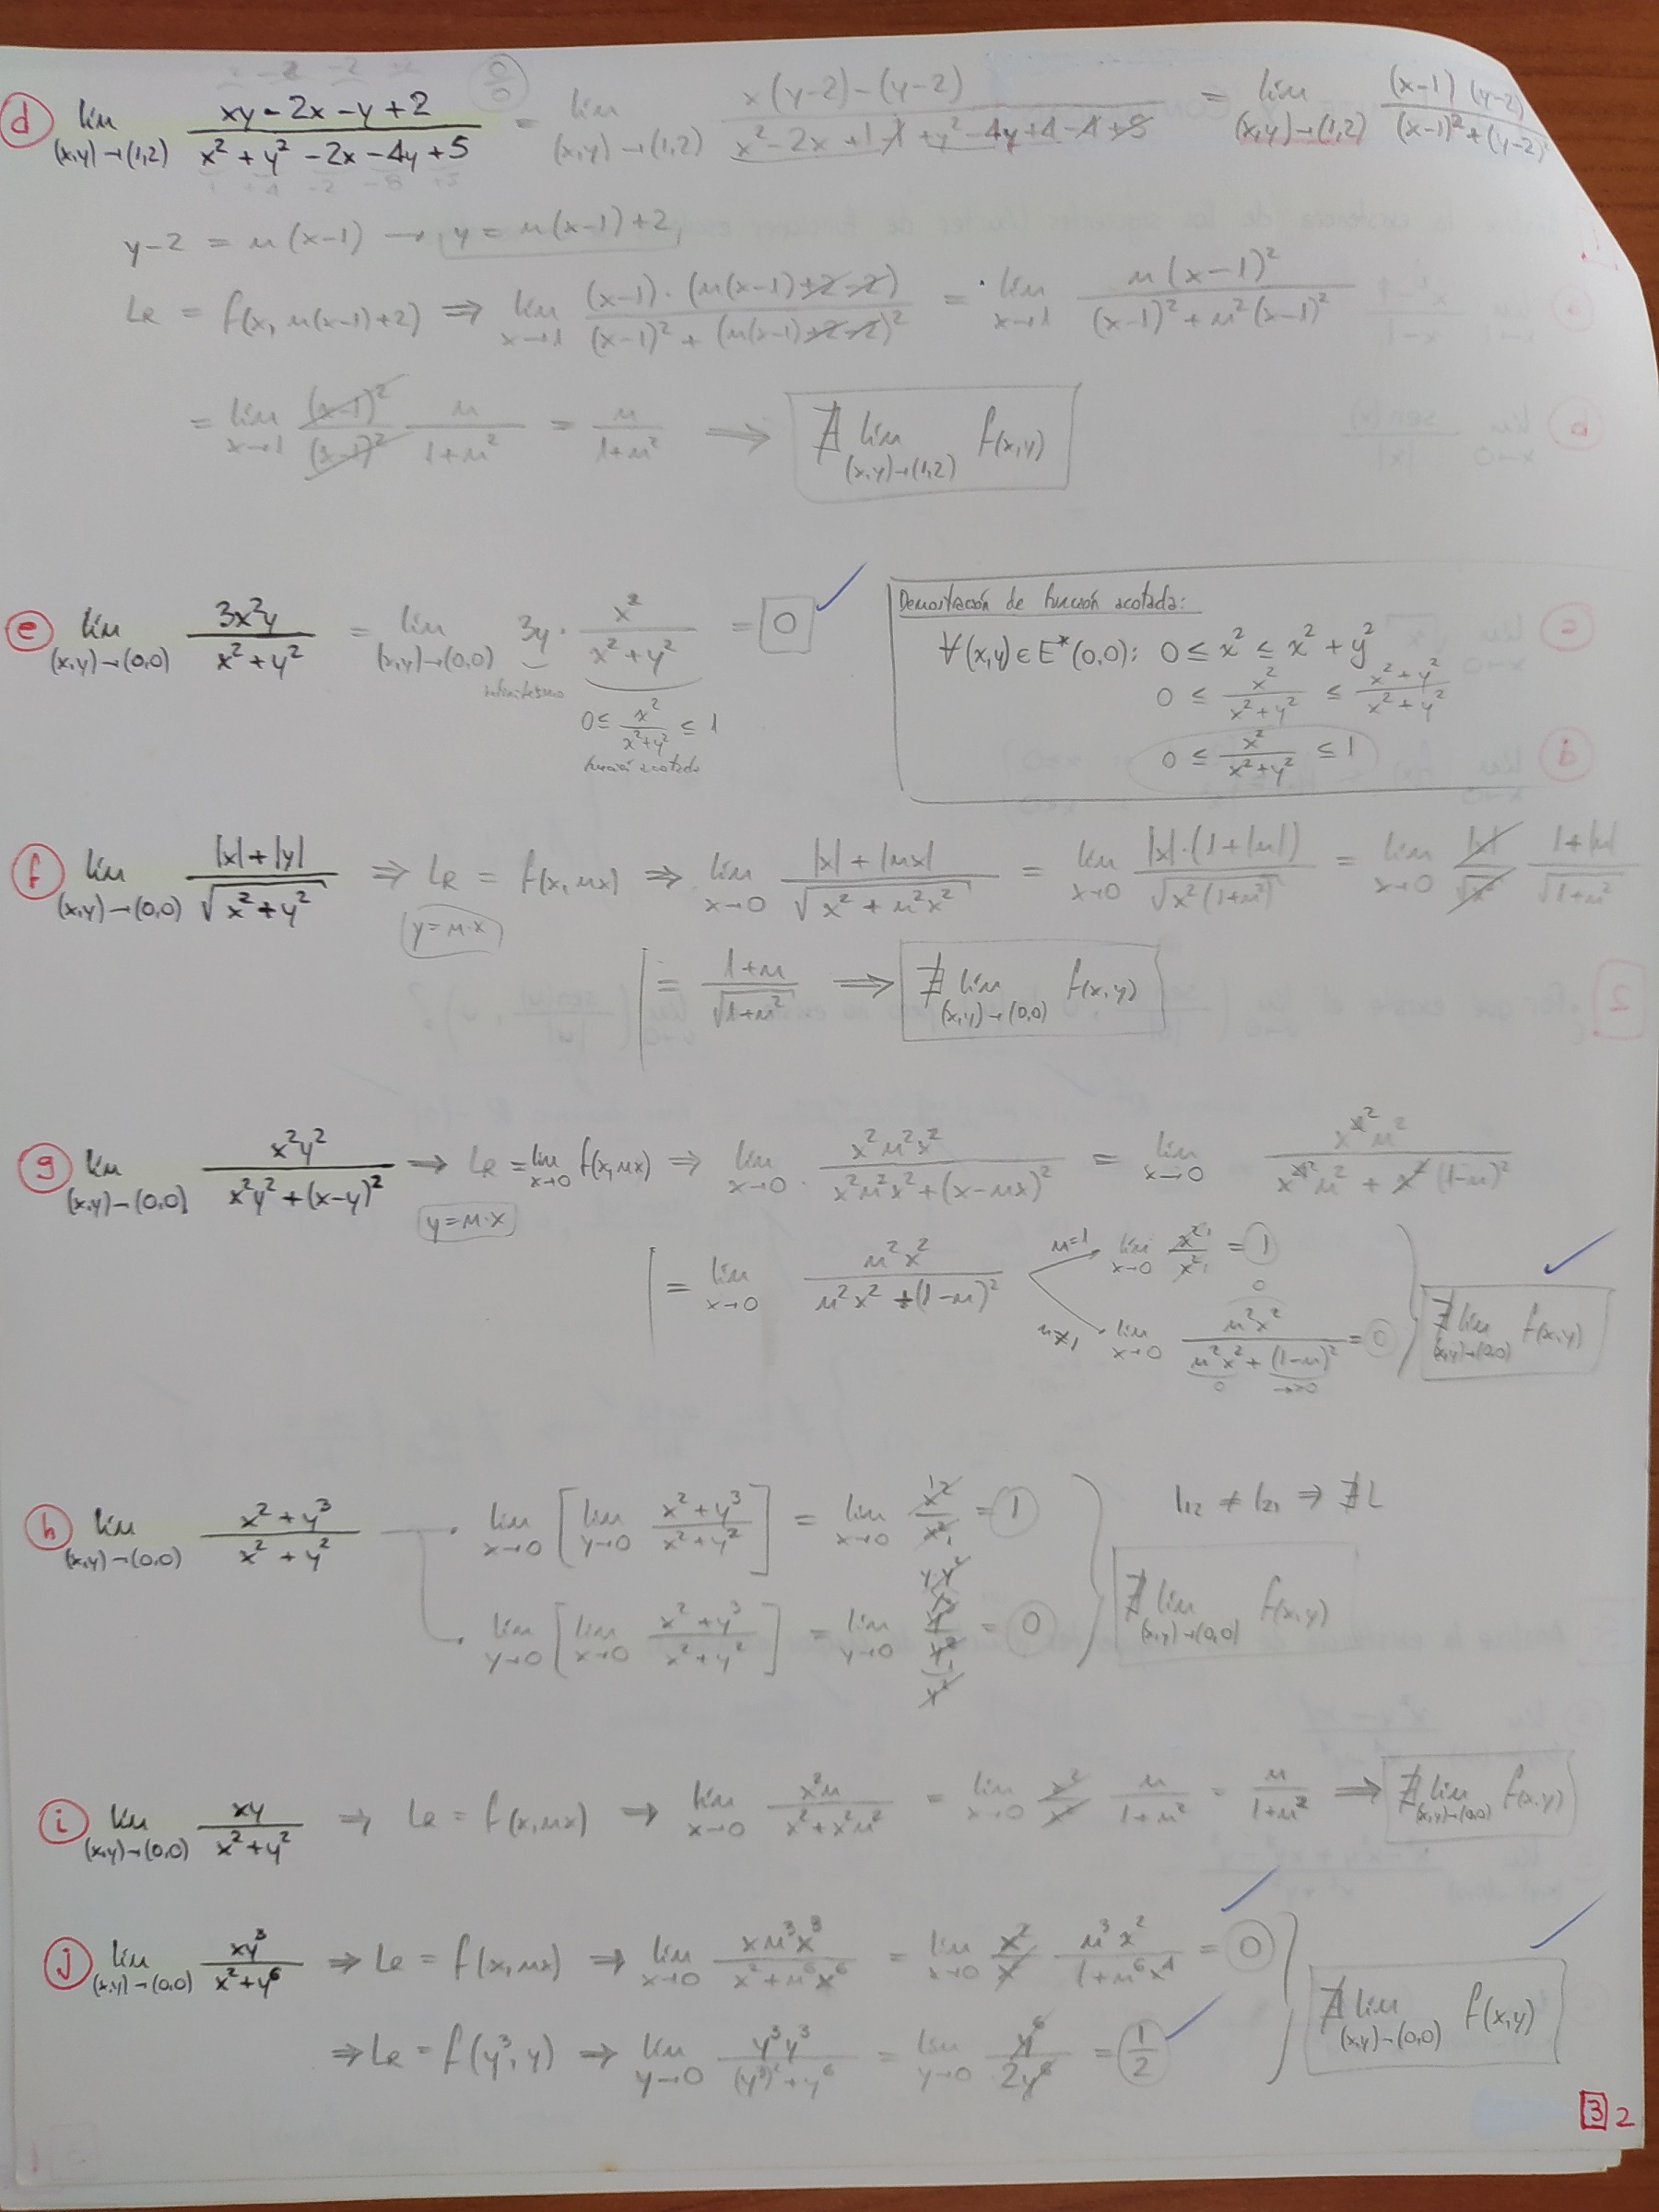 d) lim (x,y)→(1,2) (xy - 2x - y + 2)/(x² + y² - 2x - 4y + 5) = (0/0) lim (x,y)→(1,2) (x(y-2) - (y-2))/(x² - 2x + 1 - 1 + y² - 4y + 4 - 4 + 5) = lim (x,y)→(1,2) ((x-1)(y-2))/((x-1)² + (y-2)²
y - 2 = m(x-1) → y = m(x-1) + 2
LR = f(x, m(x-1)+2) ⇒ lim x→1 ((x-1)·(m(x-1)+2-2))/((x-1)² + (m(x-1)+2-2)²) = lim x→1 (m(x-1)²)/((x-1)² + m²(x-1)²)
= lim x→1 (x-1)²/(x-1)² m/(1+m²) = m/(1+m²) ⇒ ∄ lim (x,y)→(1,2) f(x,y)
e) lim (x,y)→(0,0) 3x²y/(x² + y²) = lim (x,y)→(0,0) 3y · x²/(x² + y²) = 0 ✓
infinitésimo
0 ≤ x²/(x²+y²) ≤ 1
función acotada
Demostración de función acotada:
∀(x,y) ∈ E*(0,0): 0 ≤ x² ≤ x² + y²
0 ≤ x²/(x²+y²) ≤ (x²+y²)/(x²+y²)
0 ≤ x²/(x²+y²) ≤ 1
f) lim (x,y)→(0,0) (|x| + |y|)/√(x² + y²) ⇒ LR = f(x, mx) ⇒ lim x→0 (|x| + |mx|)/√(x² + m²x²) = lim x→0 (|x|·(1+|m|))/√(x²(1+m²)) = lim x→0 |x|/√x² (1+|m|)/√(1+m²)
y = m·x
= (1+m)/√(1+m²) ⇒ ∄ lim (x,y)→(0,0) f(x,y)
g) lim (x,y)→(0,0) x²y²/(x²y² + (x-y)²) → LR = lim x→0 f(x, mx) ⇒ lim x→0 x²m²x²/(x²m²x² + (x-mx)²) = lim x→0 x⁴m²/(x⁴m² + x²(1-m)²)
y = m·x
= lim x→0 m²x²/(m²x² + (1-m)²)
m=1 lim x→0 x²/x² = 1
m≠1 lim x→0 m²x²/(m²x² + (1-m)²) = 0
∄ lim (x,y)→(0,0) f(x,y) ✓
h) lim (x,y)→(0,0) (x² + y³)/(x² + y²) · lim x→0 [lim y→0 (x² + y³)/(x² + y²)] = lim x→0 x²/x² = 1
l₁₂ ≠ l₂₁ ⇒ ∄L
· lim y→0 [lim x→0 (x² + y³)/(x² + y²)] = lim y→0 = 0
∄ lim (x,y)→(0,0) f(x,y)
i) lim (x,y)→(0,0) xy/(x² + y²) ⇒ LR = f(x, mx) ⇒ lim x→0 x²m/(x² + x²m²) = lim x→0 x²/x² m/(1+m²) = m/(1+m²) ⇒ ∄ lim (x,y)→(0,0) f(x,y)
j) lim (x,y)→(0,0) xy³/(x² + y⁶) ⇒ LR = f(x, mx) ⇒ lim x→0 xm³x³/(x² + m⁶x⁶) = lim x→0 x²/x² m³x²/(1+m⁶x⁴) = 0 ✓
⇒ LR = f(y³, y) ⇒ lim y→0 y³y³/((y³)² + y⁶) = lim y→0 y⁶/2y⁶ = 1/2 ✓
∄ lim (x,y)→(0,0) f(x,y) ✓
3 2